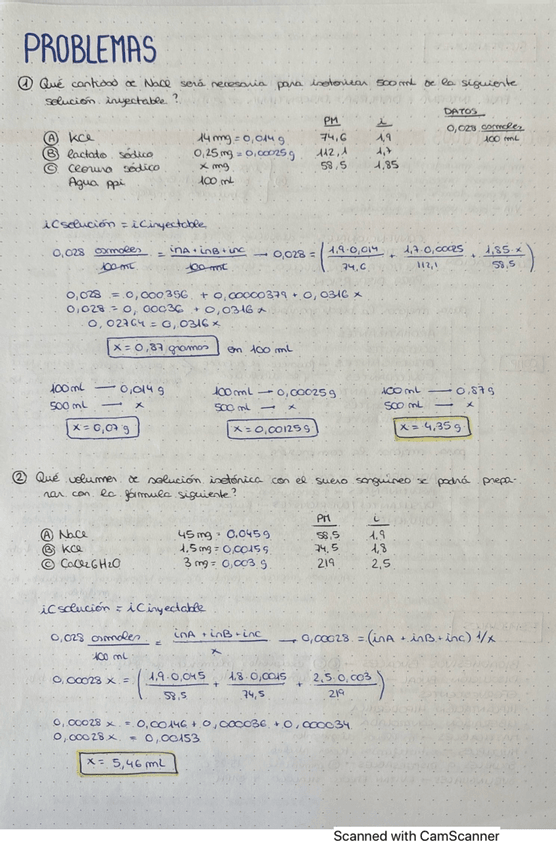 PROBLEMAS
① Qué cantidad de NaCl será necesaria para isotonizar 500 mL de la siguiente
solución inyectable?
DATOS
PM i
0,028 osmoles / 100 mL
Ⓐ KCl 14 mg = 0,014 g 74,6 1,9
Ⓑ lactato sódico 0,25 mg = 0,00025 g 112,1 1,7
Ⓒ Cloruro sódico x mg 58,5 1,85
Agua ppi 100 mL
iC solución = iC inyectable
0,028 osmoles / 100 mL = inA + inB + inC / 100 mL → 0,028 = (1,9·0,014 / 74,6 + 1,7·0,0025 / 112,1 + 1,85·x / 58,5)
0,028 = 0,000356 + 0,00000379 + 0,0316 x
0,028 = 0,00036 + 0,0316 x
0,02764 = 0,0316 x
x = 0,87 gramos en 100 mL
100 mL — 0,014 g 100 mL → 0,00025 g 100 mL — 0,87 g
500 mL — x 500 mL — x 500 mL — x
x = 0,07 g x = 0,00125 g x = 4,35 g
② Qué volumen de solución isotónica con el suero sanguíneo se podrá prepa-
rar con la fórmula siguiente?
PM i
Ⓐ NaCl 45 mg = 0,045 g 58,5 1,9
Ⓑ KCl 1,5 mg = 0,0015 g 74,5 1,8
Ⓒ CaCl₂6H₂O 3 mg = 0,003 g 219 2,5
iC solución = iC inyectable
0,028 osmoles / 100 mL = inA + inB + inC / x → 0,00028 = (inA + inB + inC) 1/x
0,00028 x = (1,9·0,045 / 58,5 + 1,8·0,0015 / 74,5 + 2,5·0,003 / 219)
0,00028 x = 0,00146 + 0,000036 + 0,000034
0,00028 x = 0,00153
x = 5,46 mL
Scanned with CamScanner